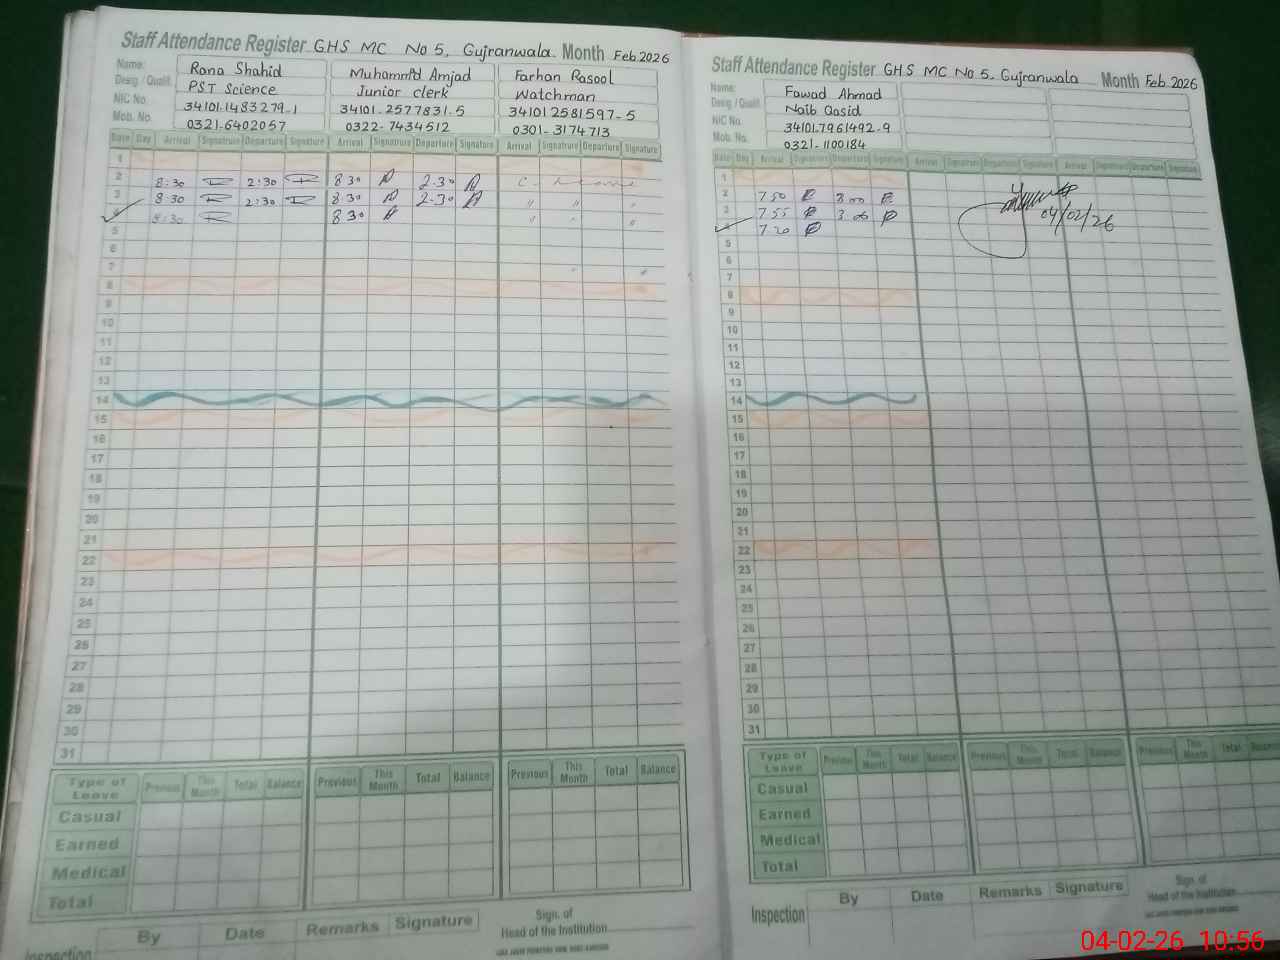 Staff Attendance Register GHS MC No 5, Gujranwala. Month Feb 2026
Name: Rana Shahid Muhammad Amjad Farhan Rasool
Desig / Qualif. PST Science Junior clerk Watchman
NIC No. 34101-1483279-1 34101-2577831-5 34101 2581597-5
Mob. No. 0321-6402057 0322-7434512 0301-3174713
Date Day Arrival Signature Departure Signature Arrival Signature Departure Signature Arrival Signature Departure Signature
1
2 8:30 2:30 8 30 2-30
3 8:30 2:30 8 30 2-30 " " "
4 8:30 8 30 " " "
5
6
7
8
9
10
11
12
13
14
15
16
17
18
19
20
21
22
23
24
25
26
27
28
29
30
31
Type of Leave Previous This Month Total Balance Previous This Month Total Balance Previous This Month Total Balance
Casual
Earned
Medical
Total
Inspection By Date Remarks Signature
Sign. of
Head of the Institution
Staff Attendance Register GHS MC No 5, Gujranwala Month Feb 2026
Name: Fawad Ahmad
Desig / Qualif. Naib Qasid
NIC No. 34101-7961492-9
Mob. No. 0321-1100184
Date Day Arrival Signature Departure Signature Arrival Signature Departure Signature Arrival Departure Signature
1
2 7 50 3 00
3 7 55 3 00
4 7 20
04/02/26
5
6
7
8
9
10
11
12
13
14
15
16
17
18
19
20
21
22
23
24
25
26
27
28
29
30
31
Type of Leave Previous This Month Total Balance Previous This Month Total Balance Previous This Month Total
Casual
Earned
Medical
Total
Inspection By Date Remarks Signature
Sign. of
Head of the Institution
04-02-26 10:56